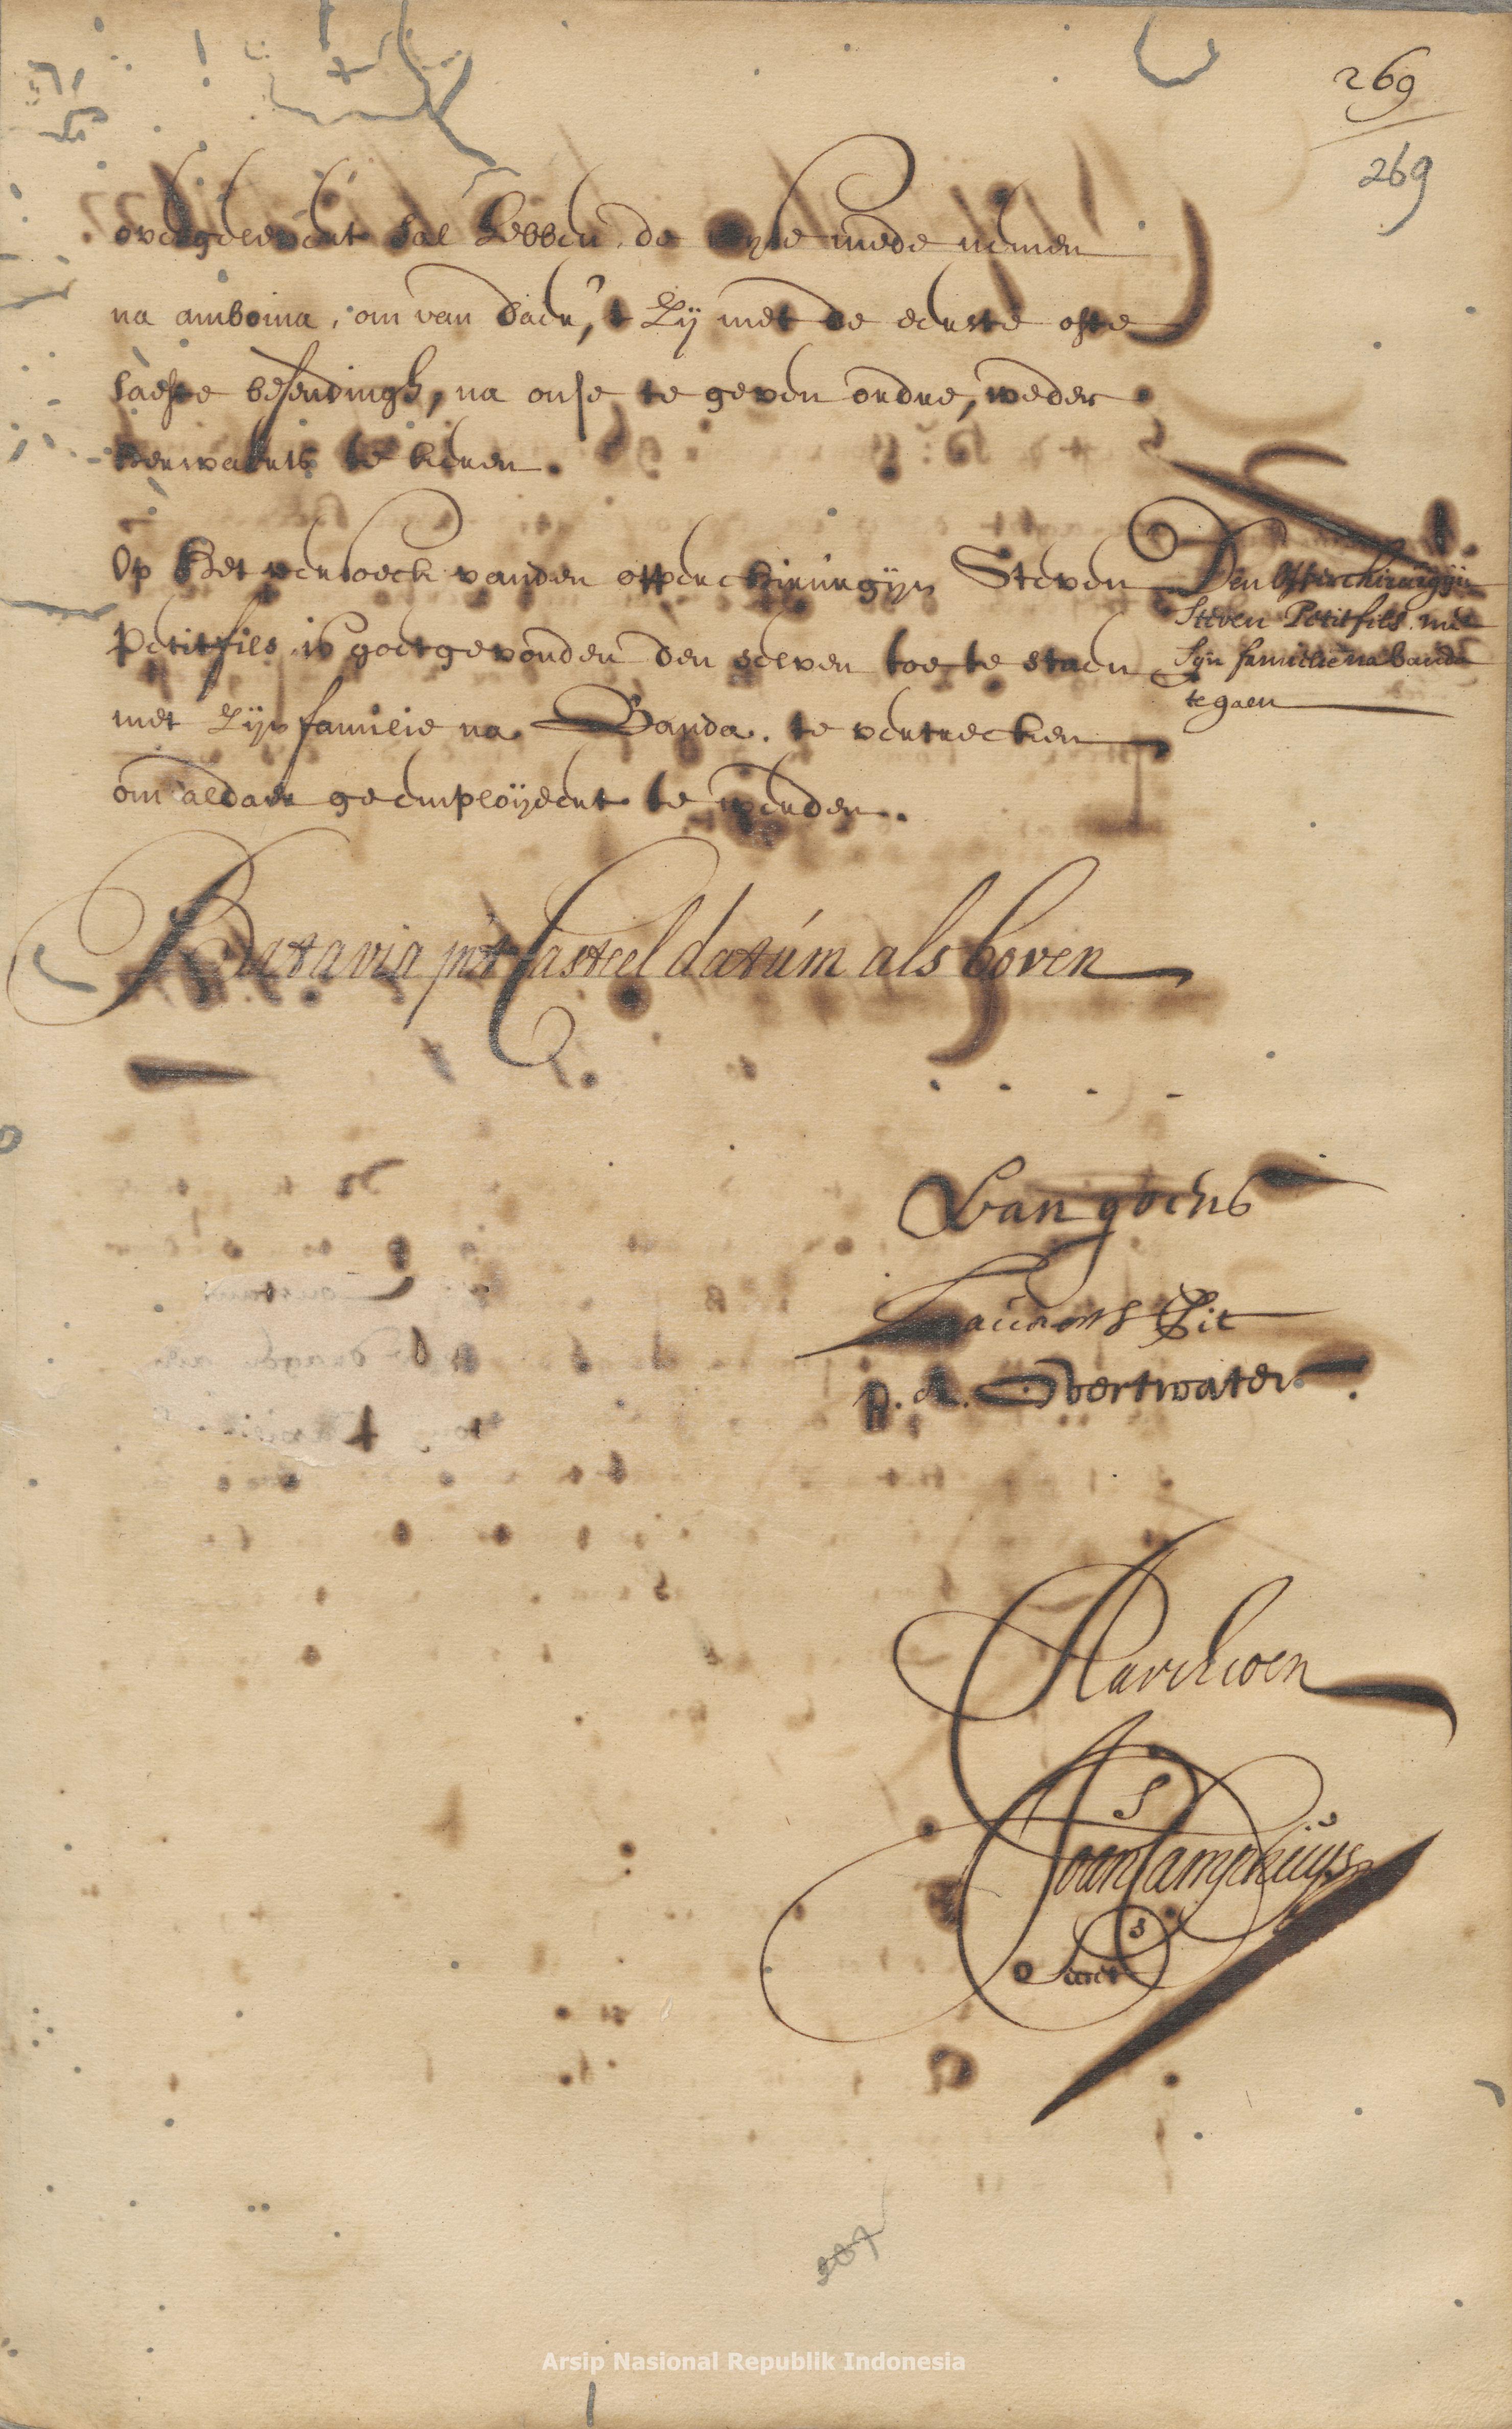 269
269
overgelevert sal hebben, de sijne mede nemen
na amboina, om van daer, 't zij met de eerste ofte
laeste besendingh, na onse te geven ordre, weder
herwaerts te keren.
Op het versoeck vanden opperchirurgijn Steven
Petitfils is goetgevonden den selven toe te staen
met zijn familie na Banda te vertrecken
om aldaer geemploijeert te werden.
Den Opperchirurgijn
Steven Petitfils met
Sijn familie na banda
te gaen
Batavia in't Casteel datum als boven
Van goens
Laurens Pit
p. A. Overtwater
Joan Camphuijs
Secret
Arsip Nasional Republik Indonesia